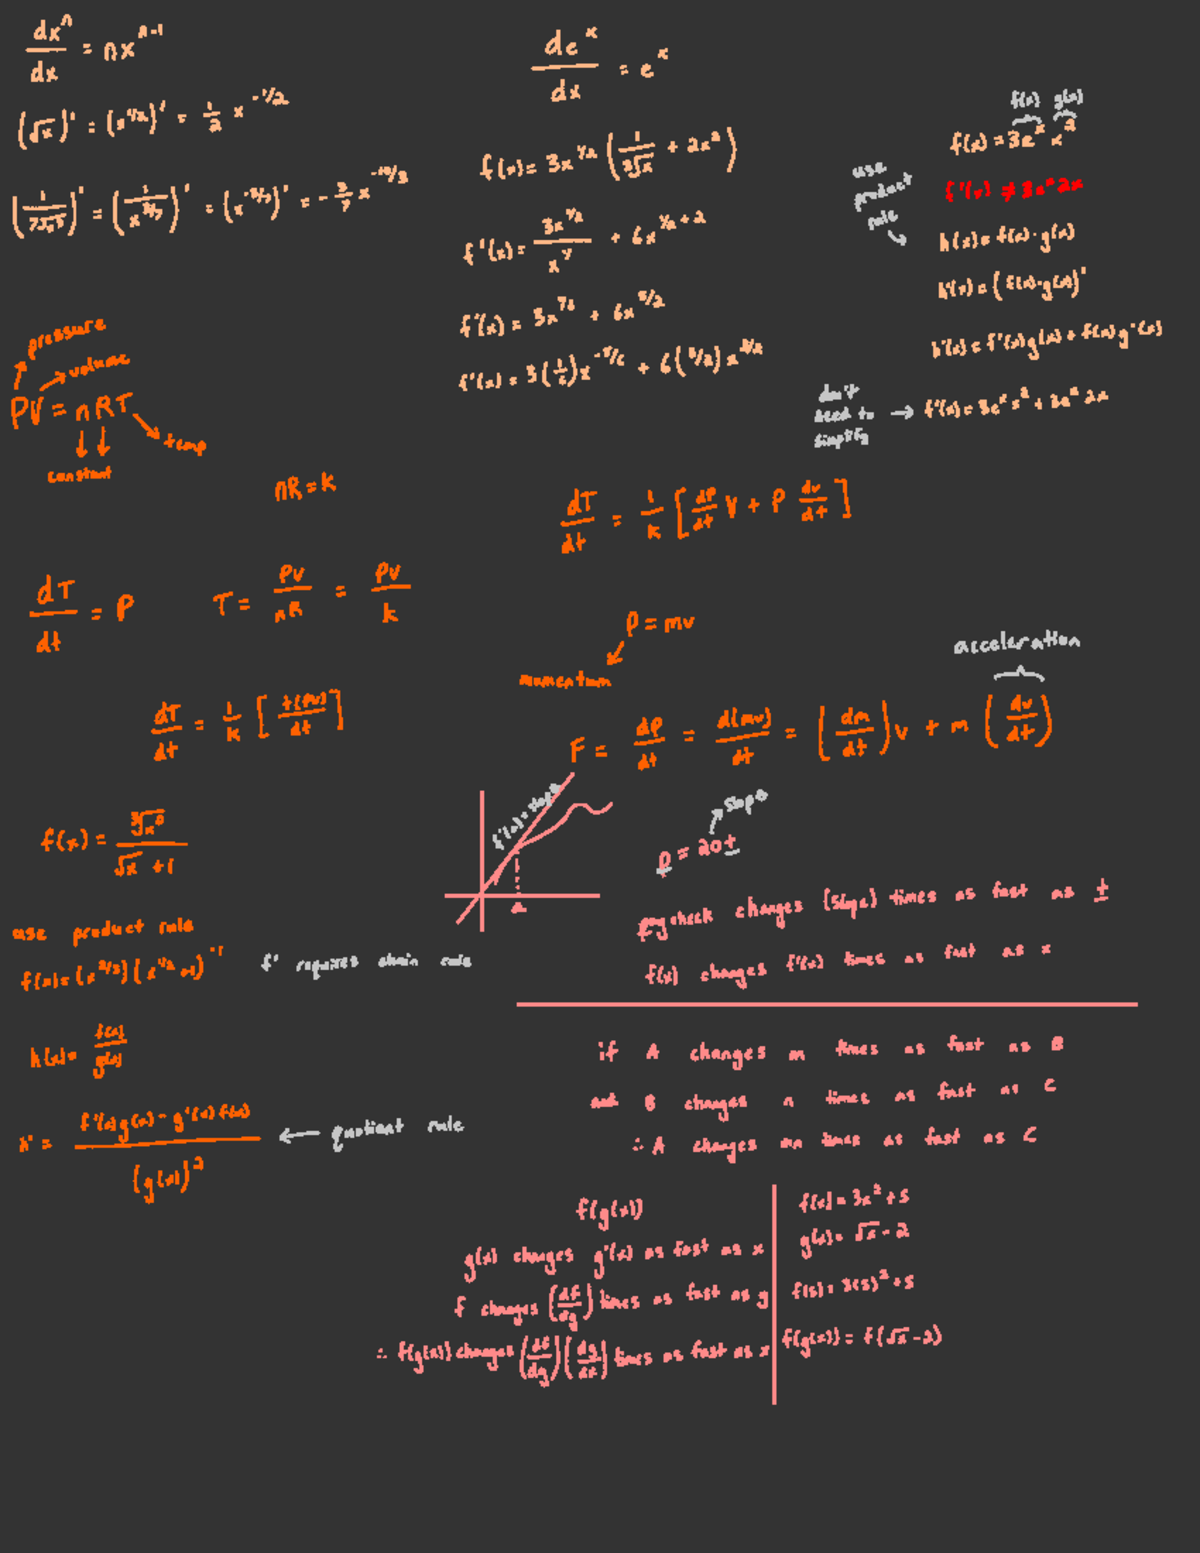 dxⁿ/dx = nxⁿ⁻¹
(√x)' = (x^1/2)' = 1/2 x^-1/2
= - 3/7 x^-10/3
de^x/dx = e^x
f(x) = 3x^1/2 (1/3√x + 2x²)
f'(x) = 3x^1/2/x^7 + 6x^1/2+2
f'(x) = 3x^76 + 6x^5/2
f'(x) = 3(1/6)x^-5/6 + 6(5/2)x^3/2
f(x) g(x)
f(x) = 3e^x x²
f'(x) ≠ 3e^x 2x
use
product
rule
h(x) = f(x)·g(x)
h'(x) = (f(x)·g(x))'
h'(x) = f'(x)g(x) + f(x)g'(x)
don't
need to → f'(x) = 3e^x x² + 3e^x 2x
simplify
pressure
volume
PV = nRT
temp
constant
nR = k
dT/dt = 1/k [dP/dt V + P dv/dt]
dT/dt = P
T = PV/nR = PV/k
dT/dt = 1/k [+(PV)/dt]
P = mv
momentum
acceleration
F = dP/dt = d(mv)/dt = (dm/dt)v + m(dv/dt)
f'(a) = slope
a
slope
p = 20t
paycheck changes (slope) times as fast as t
f(x) changes f'(x) times as fast as x
f(x) = /√x + 1
use product rule
f(x) = (x^2/3)(x^1/2 +1)^-1
f' requires chain rule
h(x) = f(x)/g(x)
h' = f'(x)g(x) - g'(x)f(x)/(g(x))² ← quotient rule
if A changes m times as fast as B
and B changes n times as fast as C
∴ A changes mn times as fast as C
f(g(x))
g(x) changes g'(x) as fast as x
f changes (df/dg) times as fast as g
∴ f(g(x)) changes (df/dg)(dg/dx) times as fast as x
f(x) = 3x² + 5
g(x) = √x - 2
f(5) = 3(5)² + 5
f(g(x)) = f(√x - 2)